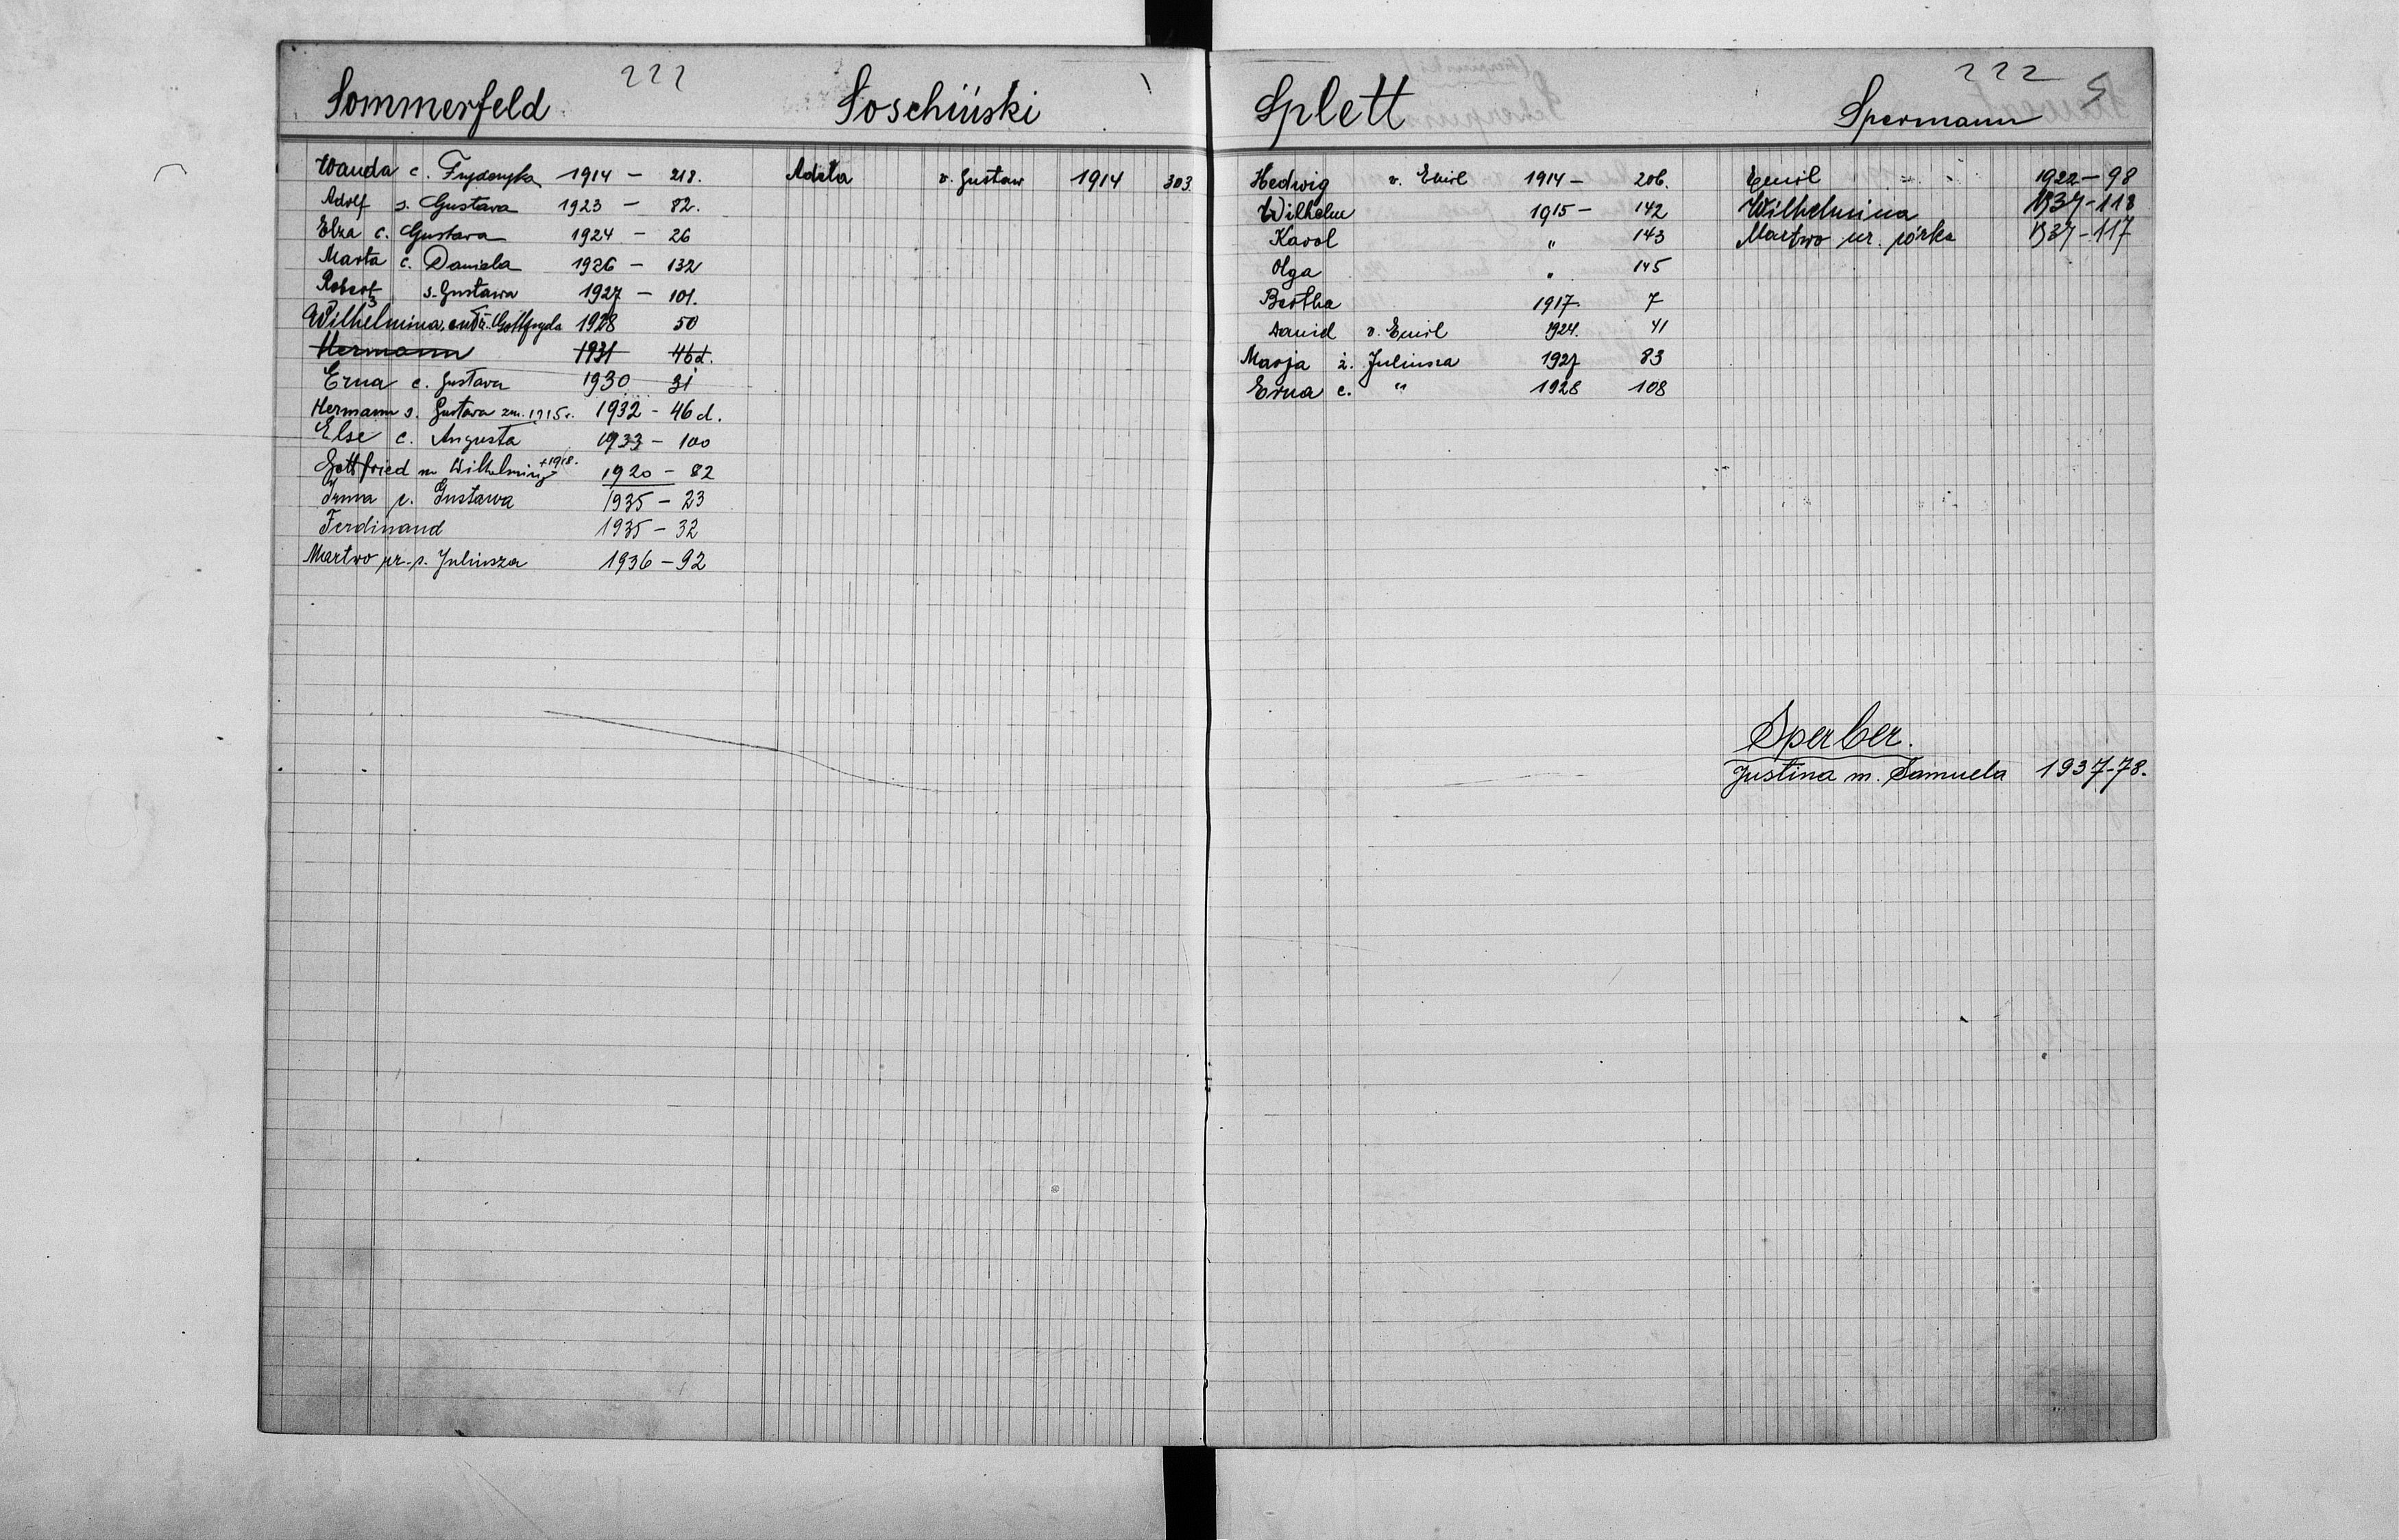 222
Sommerfeld
Soschiński
Wanda c. Fryderyka 1914 — 218.
Adolf s. Gustava 1923 — 82.
Elza c. Gustava 1924 — 26
Marta c. Daniela 1926 — 132
Robert s. Gustawa 1927 — 101.
Wilhelmina, Gottfryda 1928 50
Hermann 1931 46d.
Erna c. Gustava 1930 31
Hermann s. Gustava zm. 1915 r. 1932 - 46d.
Else c. Augusta 1933 — 100
Gottfried m Wilhelminy +1918. 1920 — 82
Irma c. Gustawa 1935 — 23
Ferdinand 1935 — 32
Martwo ur. s. Juliusza 1936 — 92
Adela v. Gustaw 1914 303
222
Splett
Spermann
Hedwig v. Emil 1914 — 206.
Wilhelm 1915 — 142
Karol " 143
Olga " 145
Bertha 1917. 7
David v. Emil 1924. 41
Marja ż. Juliusza 1927 83
Erna c. " 1928 108
Emil 1922 — 98
Wilhelmina 1937 - 118
Martwo ur. córka 1937 - 117
Sperber.
Justina m. Samuela 1937-78.